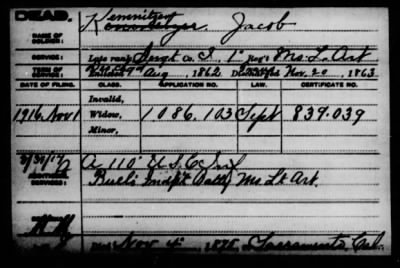 DEAD.
Kemnitzer
NAME OF SOLDIER: Jacob
SERVICE: Late rank Sergt Co. I, 1" Reg't Mo. L. Art
TERM OF SERVICE: Enlisted Aug , 1862 Discharged Nov. 20 , 1863
DATE OF FILING. CLASS. APPLICATION NO. LAW. CERTIFICATE NO.
Invalid,
1916 Nov 1 Widow, 1086.103 Sept 839.039
Minor,
A 110" U.S.C. Inf
SERVICES: Buel's Indpt Batty Mo Lt Art.
Died Nov 4" , 1875 , at Sacramento, Cal.